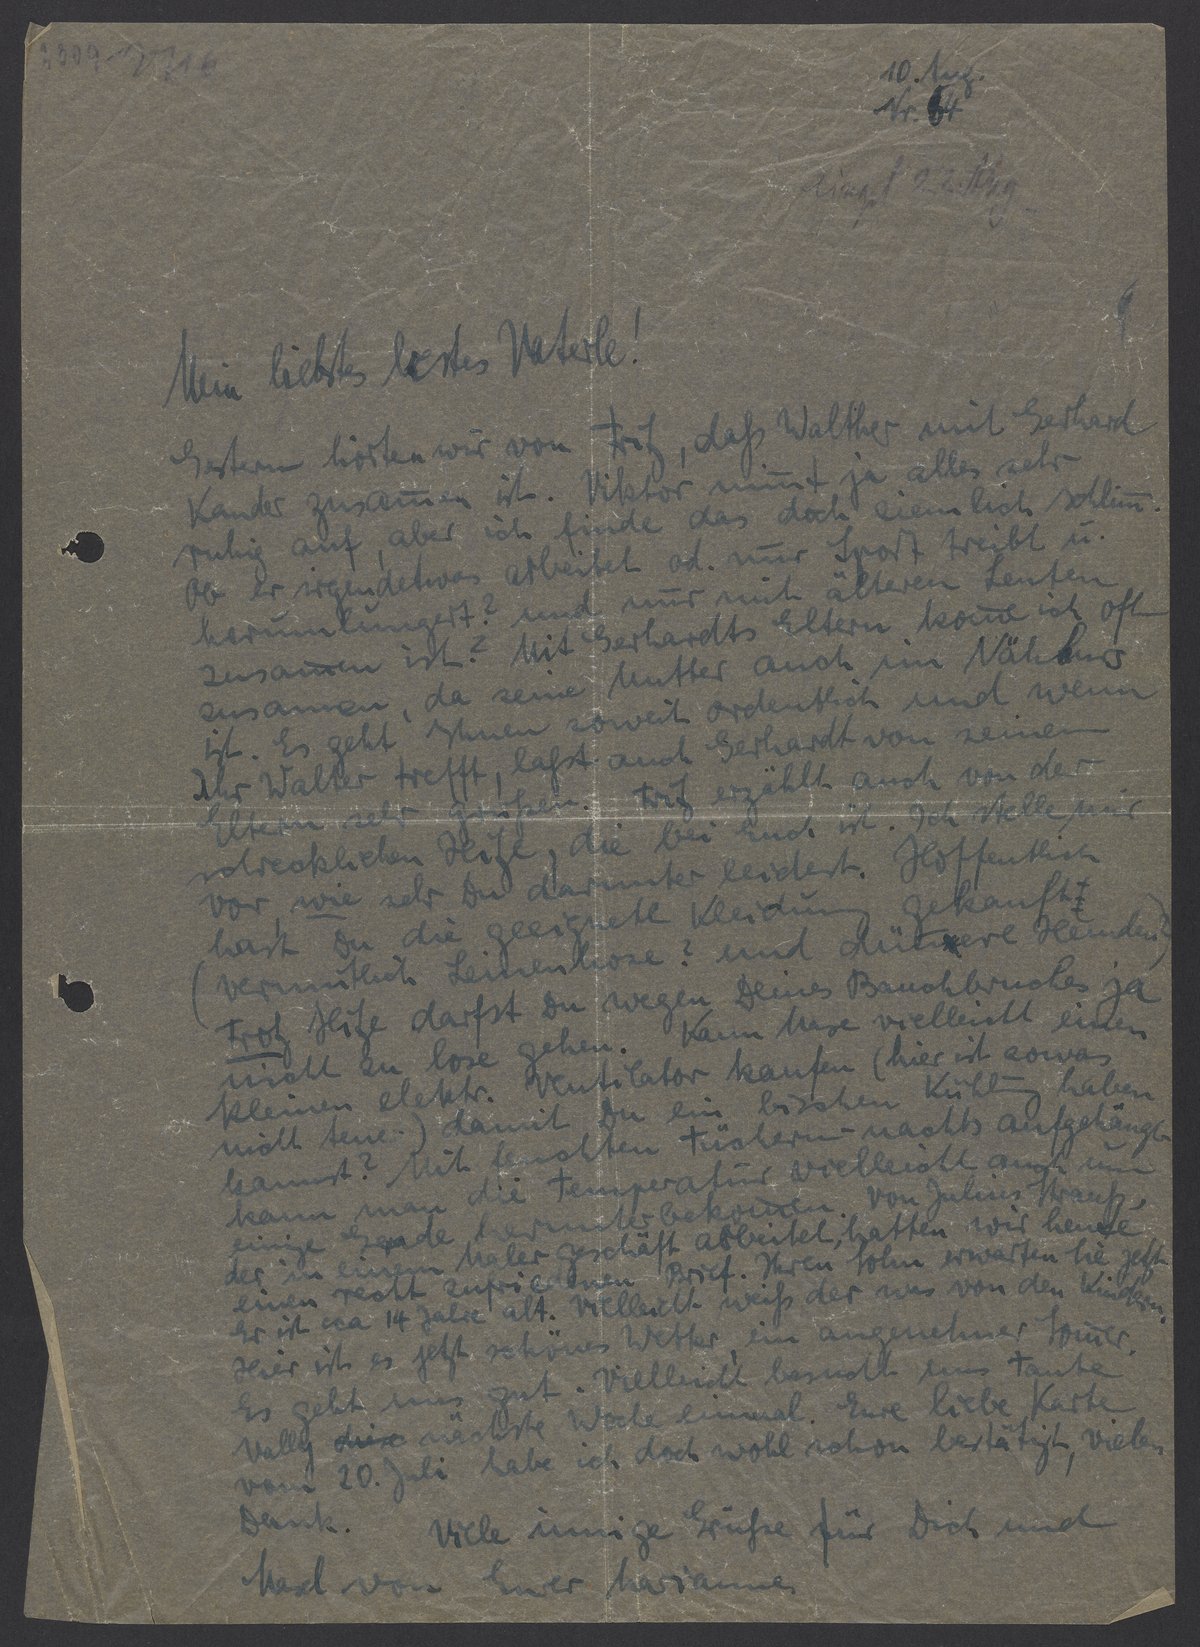 10. Aug.
Nr. 64
22. Aug
Mein liebstes bestes Vaterle!
Gestern hörten wir von Fritz, daß Walther mit Gerhard
Kander zusam̅en ist. Viktor nim̅t ja alles sehr
ruhig auf, aber ich finde das doch ziemlich schlim̅.
Ob er irgendetwas arbeitet od. nur Sport treibt u.
herumlungert? und nur mit älteren Leuten
zusam̅en ist? Mit Gerhardts Eltern kom̅e ich oft
zusammen, da seine Mutter auch im Nähkurs
ist. Es geht Ihnen soweit ordentlich und wenn
Ihr Walter trefft, laßt auch Gerhardt von seinen
Eltern sehr grüßen. Fritz erzählt auch von der
schrecklichen Hitze, die bei Euch ist. Ich stelle mir
vor, wie sehr Du darunter leidest. Hoffentlich
hast Du die geeignete Kleidung gekauft:
(vermutlich Leinenhose? und dünnere Hemden?)
Trotz Hitze darfst Du wegen Deines Bauchbruches ja
nicht zu lose gehen. Kann Maxe vielleicht einen
kleinen elektr. Ventilator kaufen (hier ist sowas
nicht teuer) damit Du ein bisschen Kühlung haben
kannst? Mit feuchten Tüchern nachts aufgehängt
kann man die Temperatur vielleicht auch um
einige Grade herunterbekom̅en. Von Julius Strauß,
der in einem Malergeschäft arbeitet, hatten wir heute
einen recht zufriedenen Brief. Ihren Sohn erwarten sie jetzt.
Er ist cca 14 Jahre alt. Vielleicht weiß der was von den Kindern.
Hier ist es jetzt schönes Wetter, ein angenehmer Som̅er.
Es geht uns gut. Vielleicht besucht uns Tante
Vally nächste Woche einmal. Eure liebe Karte
vom 20. Juli habe ich doch wohl schon bestätigt, vielen
Dank. Viele innige Grüße für Dich und
Maxl von Eurer Marianne